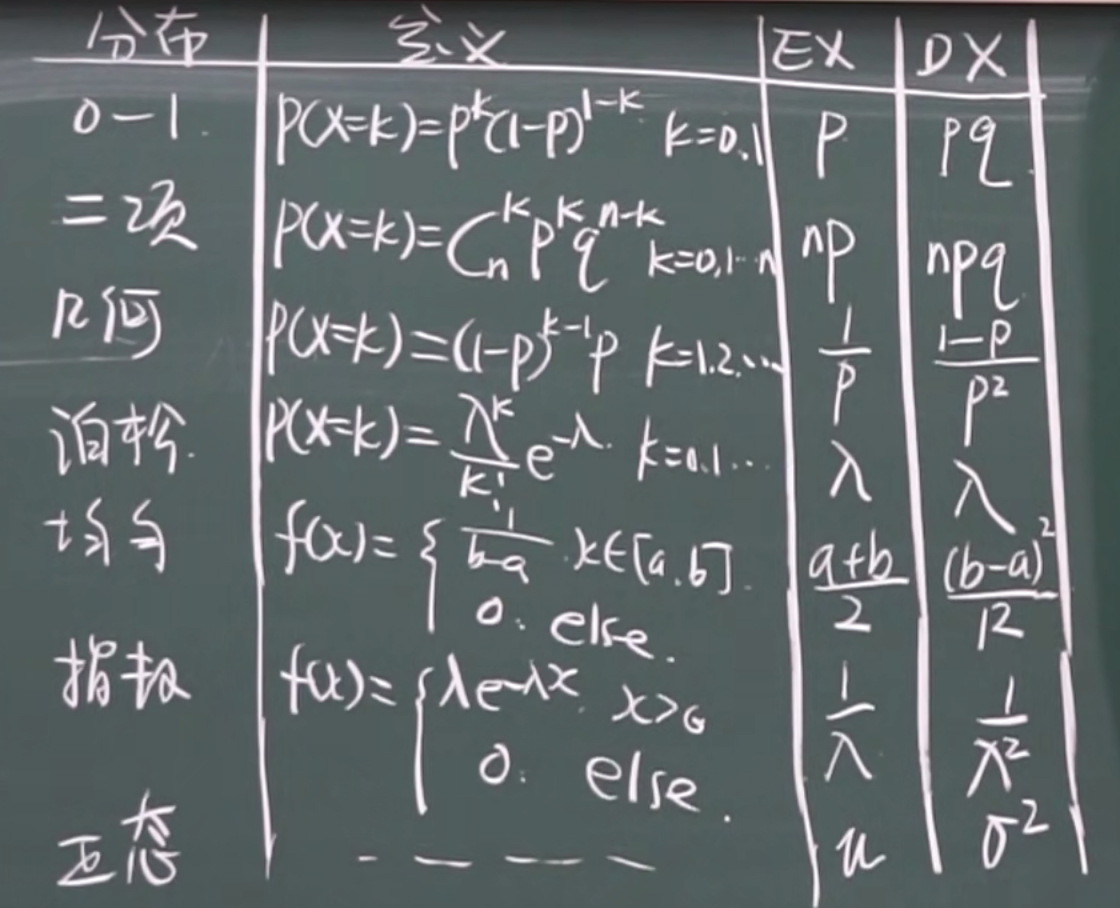 分布 定义 EX DX
0-1. P(X=k)=p^k(1-p)^{1-k} k=0.1 p pq.
二项 P(X=k)=C_n^k p^k q^{n-k} k=0,1…n np npq
几何 P(X=k)=(1-p)^{k-1}p k=1.2.… 1/p (1-p)/p²
泊松. P(X=k)=λ^k/k! e^{-λ}. k=0.1… λ λ
均匀 f(x)={ 1/(b-a) . x∈[a.b]. (a+b)/2 (b-a)²/12
0. else.
指数 f(x)={ λe^{-λx}. x>0 1/λ 1/λ²
0. else.
正态 - - - - - u σ²